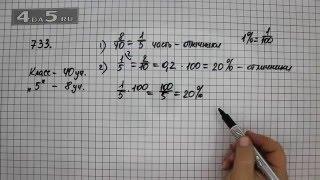 4da5.ru
733.
Класс - 40 уч.
"5" - 8 уч.
1) 8/40 = 1/5 часть - отличники
1% = 1/100
2) 1/5 = 2/10 = 0,2 · 100 = 20% - отличники
1/5 · 100 = 100/5 = 20%